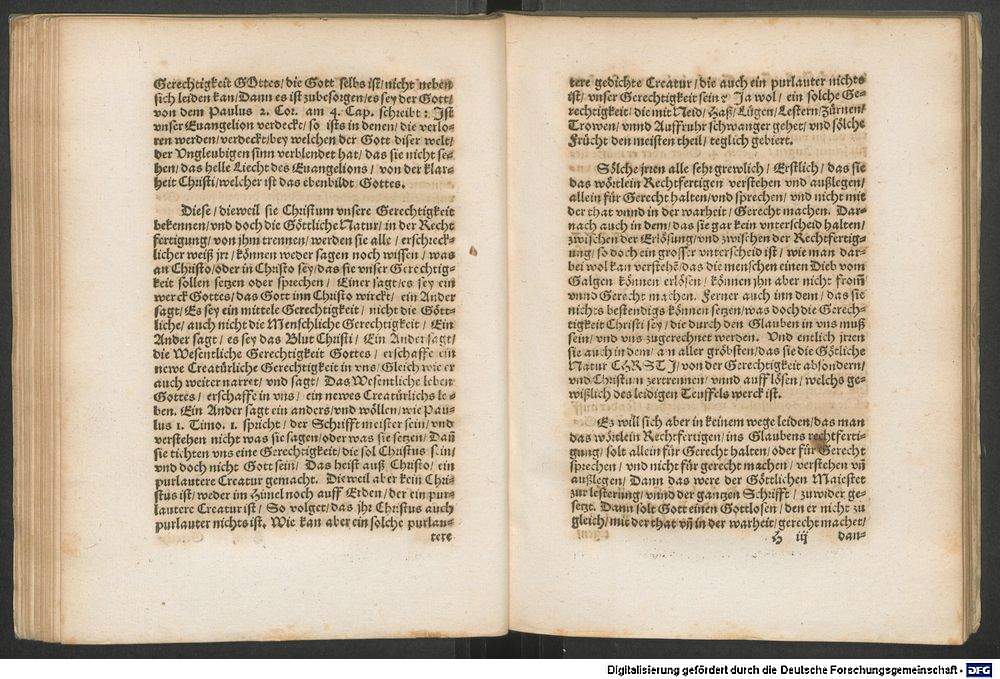 Gerechtigkeit GOttes/die Gott selbs ist/nicht neben
sich leiden kan/Dann es ist zubesorgen/es sey der Gott/
von dem Paulus 2. Cor. am 4. Cap. schreibt: Ist
vnser Euangelion verdeckt/ so ists in denen/ die verlo-
ren werden/verdeckt/bey welchen der Gott diser welt/
der Vngleubigen sinn verblendet hat/das sie nicht se-
hen/das helle Liecht des Euangelions/ von der klar-
heit Christi/welcher ist das ebenbildt Gottes.
Diese/dieweil sie Christum vnsere Gerechtigkeit
bekennen/vnd doch die Göttliche Natur/ in der Recht
fertigung/von jhm trennen/werden sie alle/ erschreck-
licher weiß jrr/können weder sagen noch wissen/ was
an Christo/oder in Christo sey/das sie vnser Gerechtig-
keit sollen setzen oder sprechen/ Einer sagt/es sey ein
werck Gottes/das Gott inn Christo wirckt/ ein Ander
sagt/Es sey ein mittele Gerechtigkeit/ nicht die Gött-
liche/auch nicht die Menschliche Gerechtigkeit/ Ein
Ander sagt/ es sey das Blut Christi/ Ein Ander sagt/
die Wesentliche Gerechtigkeit Gottes/ erschaffe ein
newe Creatürliche Gerechtigkeit in vns/Gleich wie er
auch weiter narret/vnd sagt/ Das Wesentliche leben
Gottes/ erschaffe in vns/ ein newes Creatürlichs le-
ben. Ein Ander sagt ein anders/vnd wöllen/wie Pau-
lus 1. Timo. 1. spricht/der Schrifft meister sein/vnd
verstehen nicht was sie sagen/oder was sie setzen/Dañ
sie tichten vns eine Gerechtigkeit/die sol Christus sein/
vnd doch nicht Gott sein/ Das heist auß Christo/ ein
purlautere Creatur gemacht. Dieweil aber kein Chri-
stus ist/weder im Himel noch auff Erden/der ein pur-
lautere Creatur ist/ So volget/das jhr Christus auch
purlauter nichts ist. Wie kan aber ein solche purlau-
tere
tere gedichte Creatur/die auch ein purlauter nichts
ist/vnser Gerechtigkeit sein? Ja wol/ ein solche Ge-
rechtigkeit/die mit Neid/Haß/Lügen/Lestern/Zürnen/
Trowen/vnnd Auffruhr schwanger gehet/vnd sölche
Frücht den meisten theil/teglich gebiert.
Sölche jrren alle sehr grewlich/ Erstlich/das sie
das wörtlein Rechtfertigen verstehen vnd außlegen/
allein für Gerecht halten/vnd sprechen/vnd nicht mit
der that vnnd in der warheit/ Gerecht machen. Dar-
nach auch in dem/das sie gar kein vnterscheid halten/
zwischen der Erlösung/vnd zwischen der Rechtfertig-
ung/so doch ein grosser vnterscheid ist/ wie man dar-
bei wol kan verstehẽ/das die menschen einen Dieb vom
Galgen können erlösen/ können jhn aber nicht fromm
vnnd Gerecht machen. Ferner auch inn dem/das sie
nichts bestendigs können setzen/was doch die Gerech-
tigkeit Christi sey/die durch den Glauben in vns muß
sein/vnd vns zugerechnet werden. Vnd entlich jrren
sie auch in dem/an aller gröbsten/das sie die Götliche
Natur CHRSTJ/von der Gerechtigkeit absondern/
vnd Christum zertrennen/vnnd aufflösen/welchs ge-
wißlich des leidigen Teuffels werck ist.
Es will sich aber in keinem wege leiden/das man
das wörtlein Rechtfertigen/ins Glaubens rechtferti-
gung/solt allein für Gerecht halten/oder für Gerecht
sprechen/ vnd nicht für gerecht machen/ verstehen vñ
außlegen/ Dann das were der Göttlichen Maiestet
zur lesterung/vnnd der gantzen Schrifft/zuwider ge-
setzt. Dann solt Gott einen Gottlosen/den er nicht zu
gleich/mit der that vñ in der warheit/gerecht machet/
H iij dan-
Digitalisierung gefördert durch die Deutsche Forschungsgemeinschaft - DFG